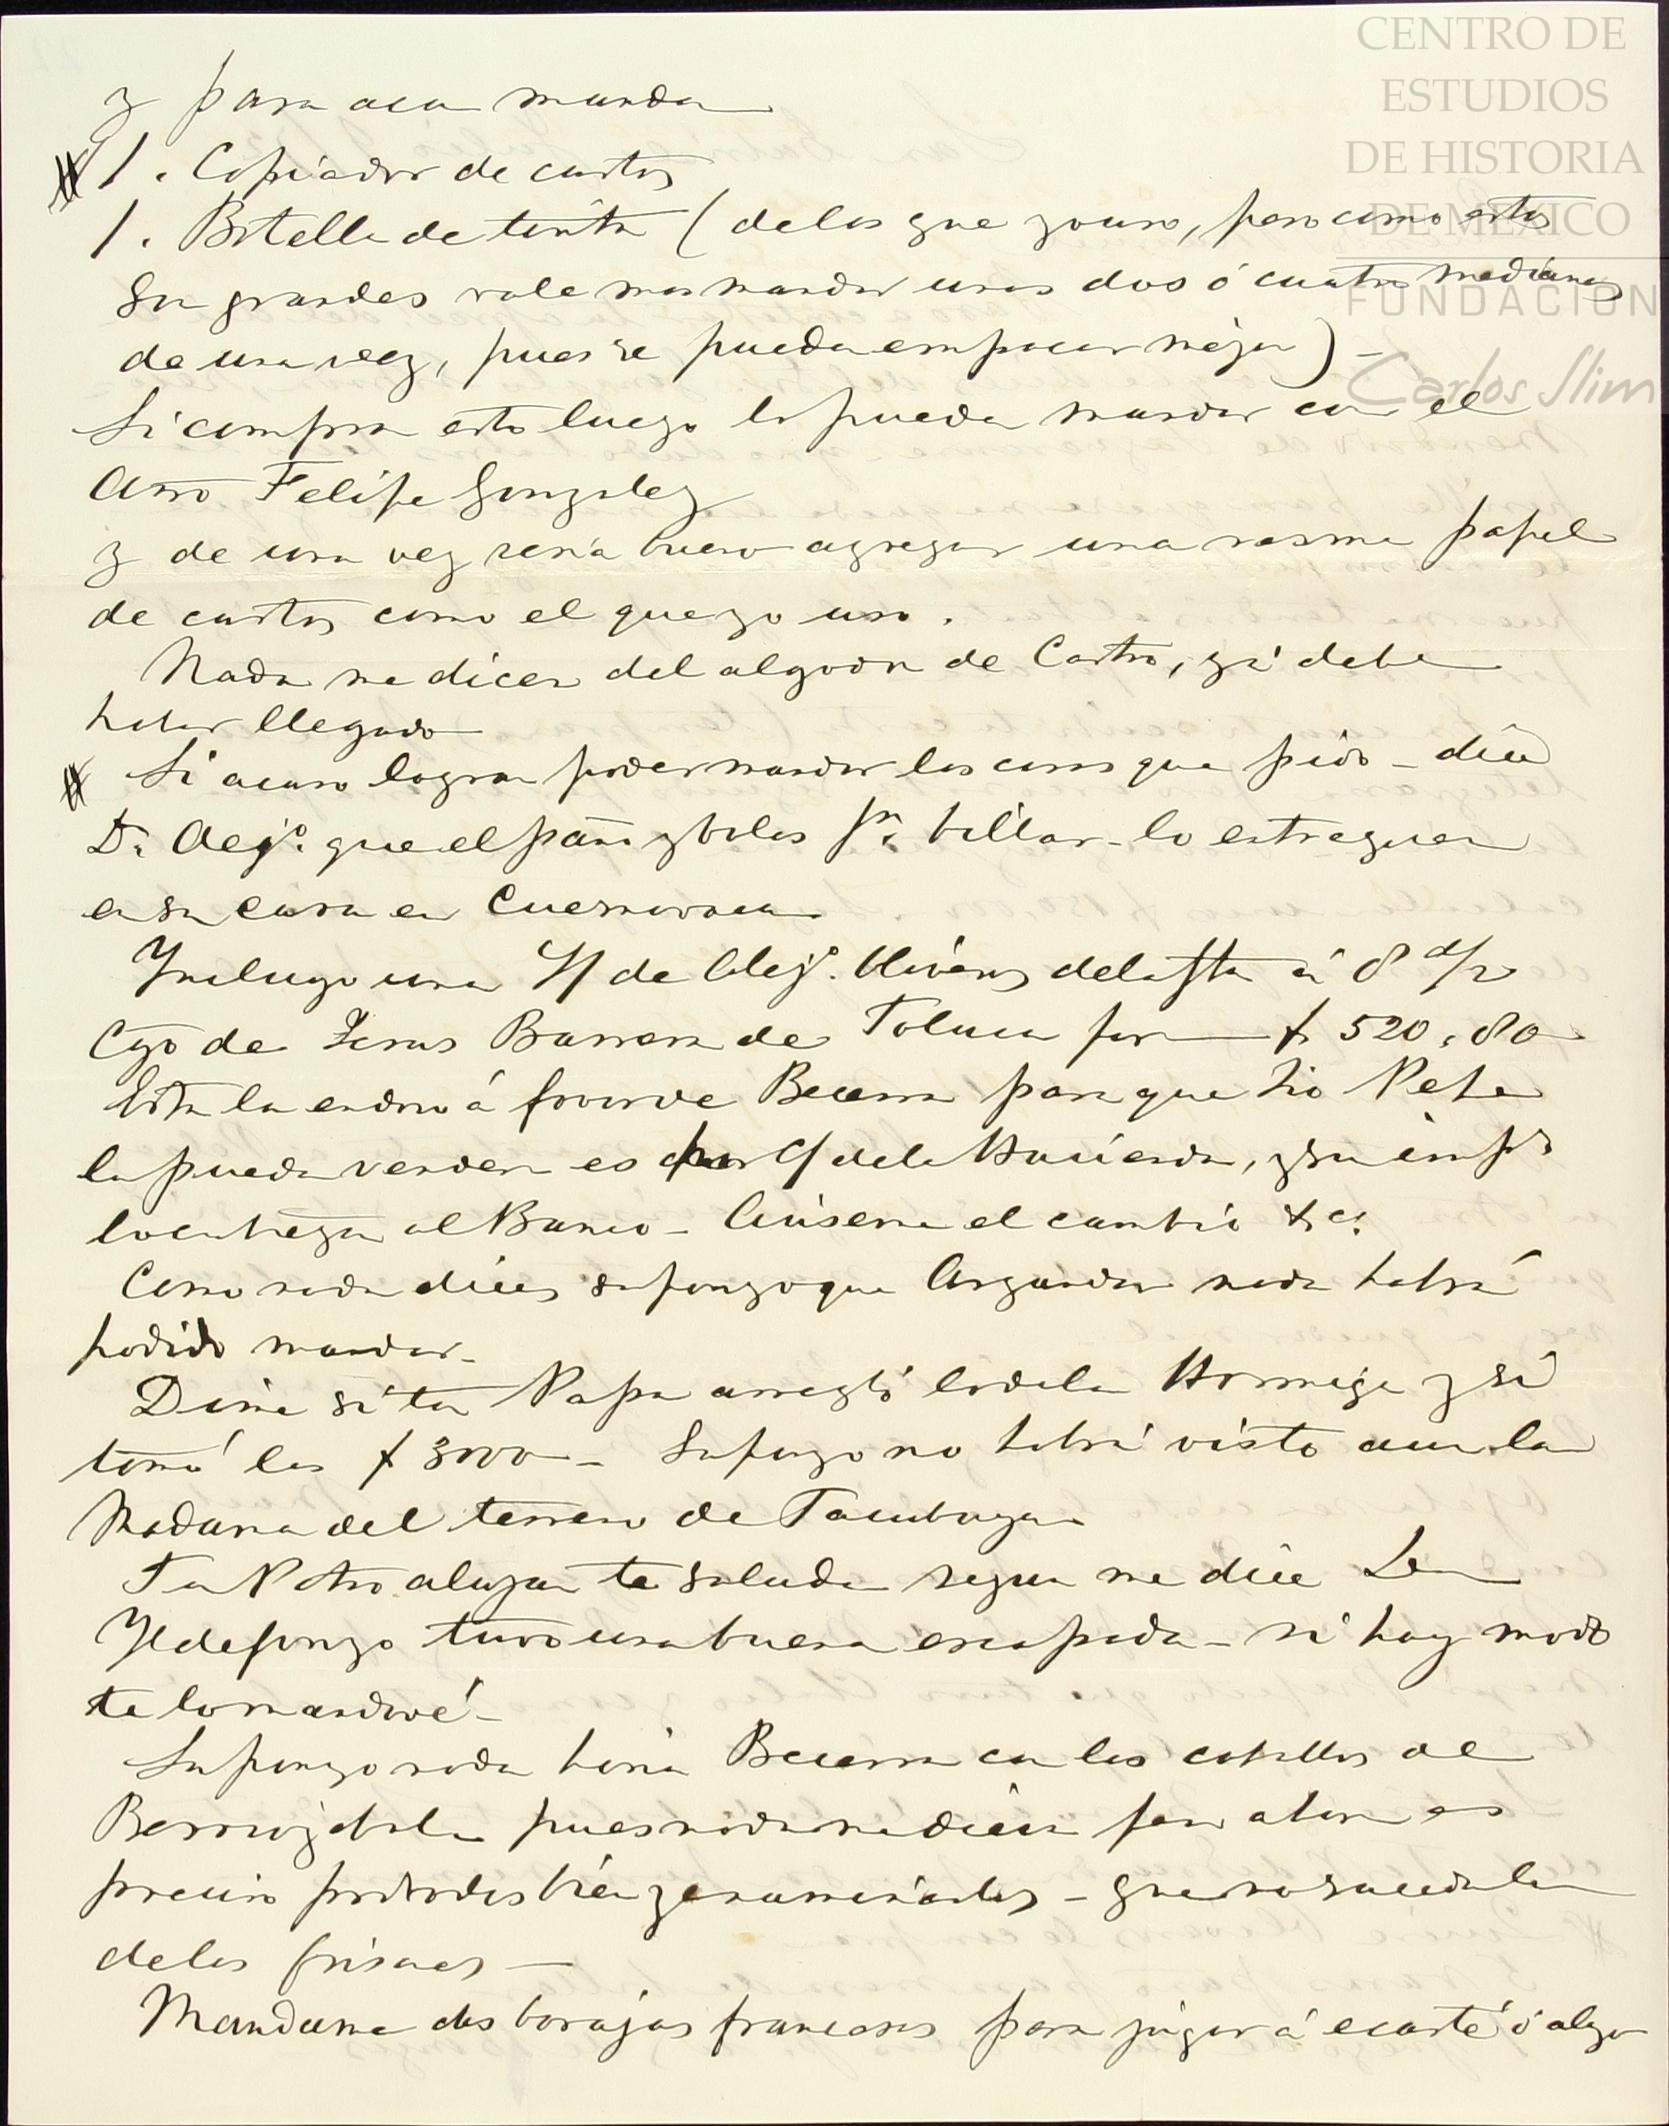 CENTRO DE
ESTUDIOS
DE HISTORIA
DE MÉXICO
FUNDACIÓN
Carlos Slim
y para aca manda
# 1. Copiador de cartas
1. Botella de tinta (de las que yo uso, pero como estas
son grandes vale mas mandar unas dos ó cuatro medianas
de una vez, pues se pueda empacar mejor) -
Si compra esto luego lo pueda mandar con el
Arro Felipe Gonzalez
y de una vez sería bueno agregar una resma papel
de cartas como el que yo uso.
Nada me dicen del algodon de Castro, yá debe
haber llegado
# Si acaso logran poder mandar las cosas que pido - dice
Dn. Alejo. que el paño y bolas pa. billar - lo entreguen
en su casa en Cuernavaca
Incluyo una L/ de Alejo. Oliveros de la fha á 8 d/v
Cgo de Jesus Barrera de Toluca por $ 520,80
Esta la endoso á favor de Becerra para que tio Pepe
la pueda vender es por C/ de la Hacienda, y su impe
lo entrega al Banco - Avisame el cambio &ca.
Como nada dices supongo que Argandar nada habrá
podido mandar -
Dime si tu Papa arregló lo de la Hormiga y si
tomó los $ 3000 - Supongo no habrá visto aun la
Madama del terreno de Tacubaya
Tu Potro alazan te saluda segun me dice Dn
Yldefonzo tuvo una buena escapada - si hay modo
te lo mandaré -
Supongo nada haria Becerra con los caballos de
Berruizabala pues nada me dicen pero ahora es
preciso probarlos bien y examinarlos - que no suceda la
de los frisones -
Mandame dos barajas francesas para jugar á ecarté ó algo